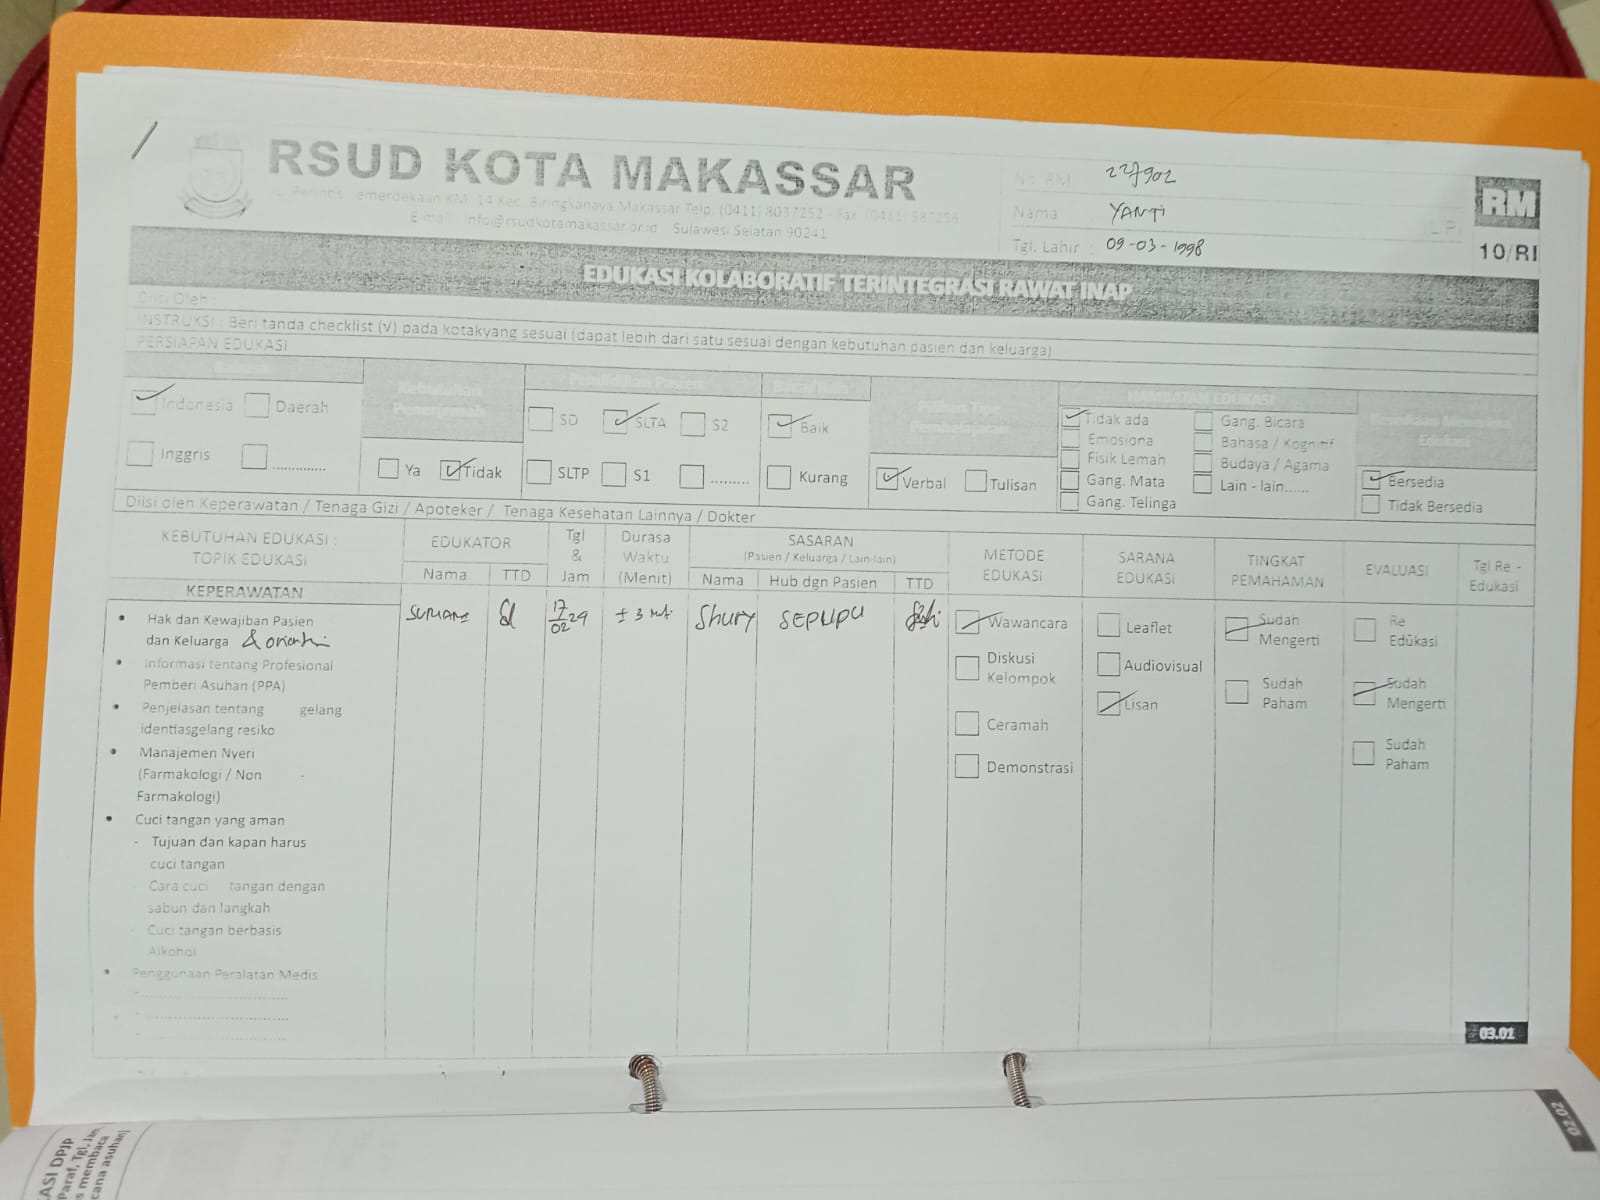 RSUD KOTA MAKASSAR
Kec. Biringkanaya Makassar Telp. (0411) 8037252 - Fax (0411)
E-mail : info@rsudkotamakassar.or.id Sulawesi Selatan 90241
No. RM
Nama : YANTI
(L/P)
Tgl. Lahir : 09-03-1998
RM
10/RI
EDUKASI KOLABORATIF TERINTEGRASI RAWAT INAP
Diisi Oleh :
INSTRUKSI : Beri tanda checklist (√) pada kotakyang sesuai (dapat lebih dari satu sesuai dengan kebutuhan pasien dan keluarga)
PERSIAPAN EDUKASI
Bahasa
Indonesia
Daerah
Inggris
.............
Kebutuhan
Penerjemah
Ya
Tidak
Pendidikan Pasien
SD
SLTA
S2
SLTP
S1
.........
Baca/Tulis
Baik
Kurang
Pilihan Tipe
Pembelajaran
Verbal
Tulisan
HAMBATAN EDUKASI
Tidak ada
Gang. Bicara
Emosiona
Bahasa / Kognitif
Fisik Lemah
Budaya / Agama
Gang. Mata
Lain - lain......
Gang. Telinga
Kesediaan Menerima
Edukasi
Bersedia
Tidak Bersedia
Diisi oleh Keperawatan / Tenaga Gizi / Apoteker / Tenaga Kesehatan Lainnya / Dokter
KEBUTUHAN EDUKASI :
TOPIK EDUKASI
EDUKATOR
Nama
TTD
Tgl
&
Jam
Durasa
Waktu
(Menit)
SASARAN
(Pasien / Keluarga / Lain-lain)
Nama
Hub dgn Pasien
TTD
METODE
EDUKASI
SARANA
EDUKASI
TINGKAT
PEMAHAMAN
EVALUASI
Tgl Re -
Edukasi
KEPERAWATAN
• Hak dan Kewajiban Pasien
dan Keluarga
• Informasi tentang Profesional
Pemberi Asuhan (PPA)
• Penjelasan tentang gelang
identiasgelang resiko
• Manajemen Nyeri
(Farmakologi / Non
Farmakologi)
• Cuci tangan yang aman
- Tujuan dan kapan harus
cuci tangan
- Cara cuci tangan dengan
sabun dan langkah
- Cuci tangan berbasis
Alkohol
• Penggunaan Peralatan Medis
17/02 29
± 3 mt
SEPUPU
Wawancara
Diskusi
Kelompok
Ceramah
Demonstrasi
Leaflet
Audiovisual
Lisan
Sudah
Mengerti
Sudah
Paham
Re
Edukasi
Sudah
Mengerti
Sudah
Paham
03.01
02.02
ASI DPJP
Paraf, Tgl, Jam
s membaca
cana asuhan)